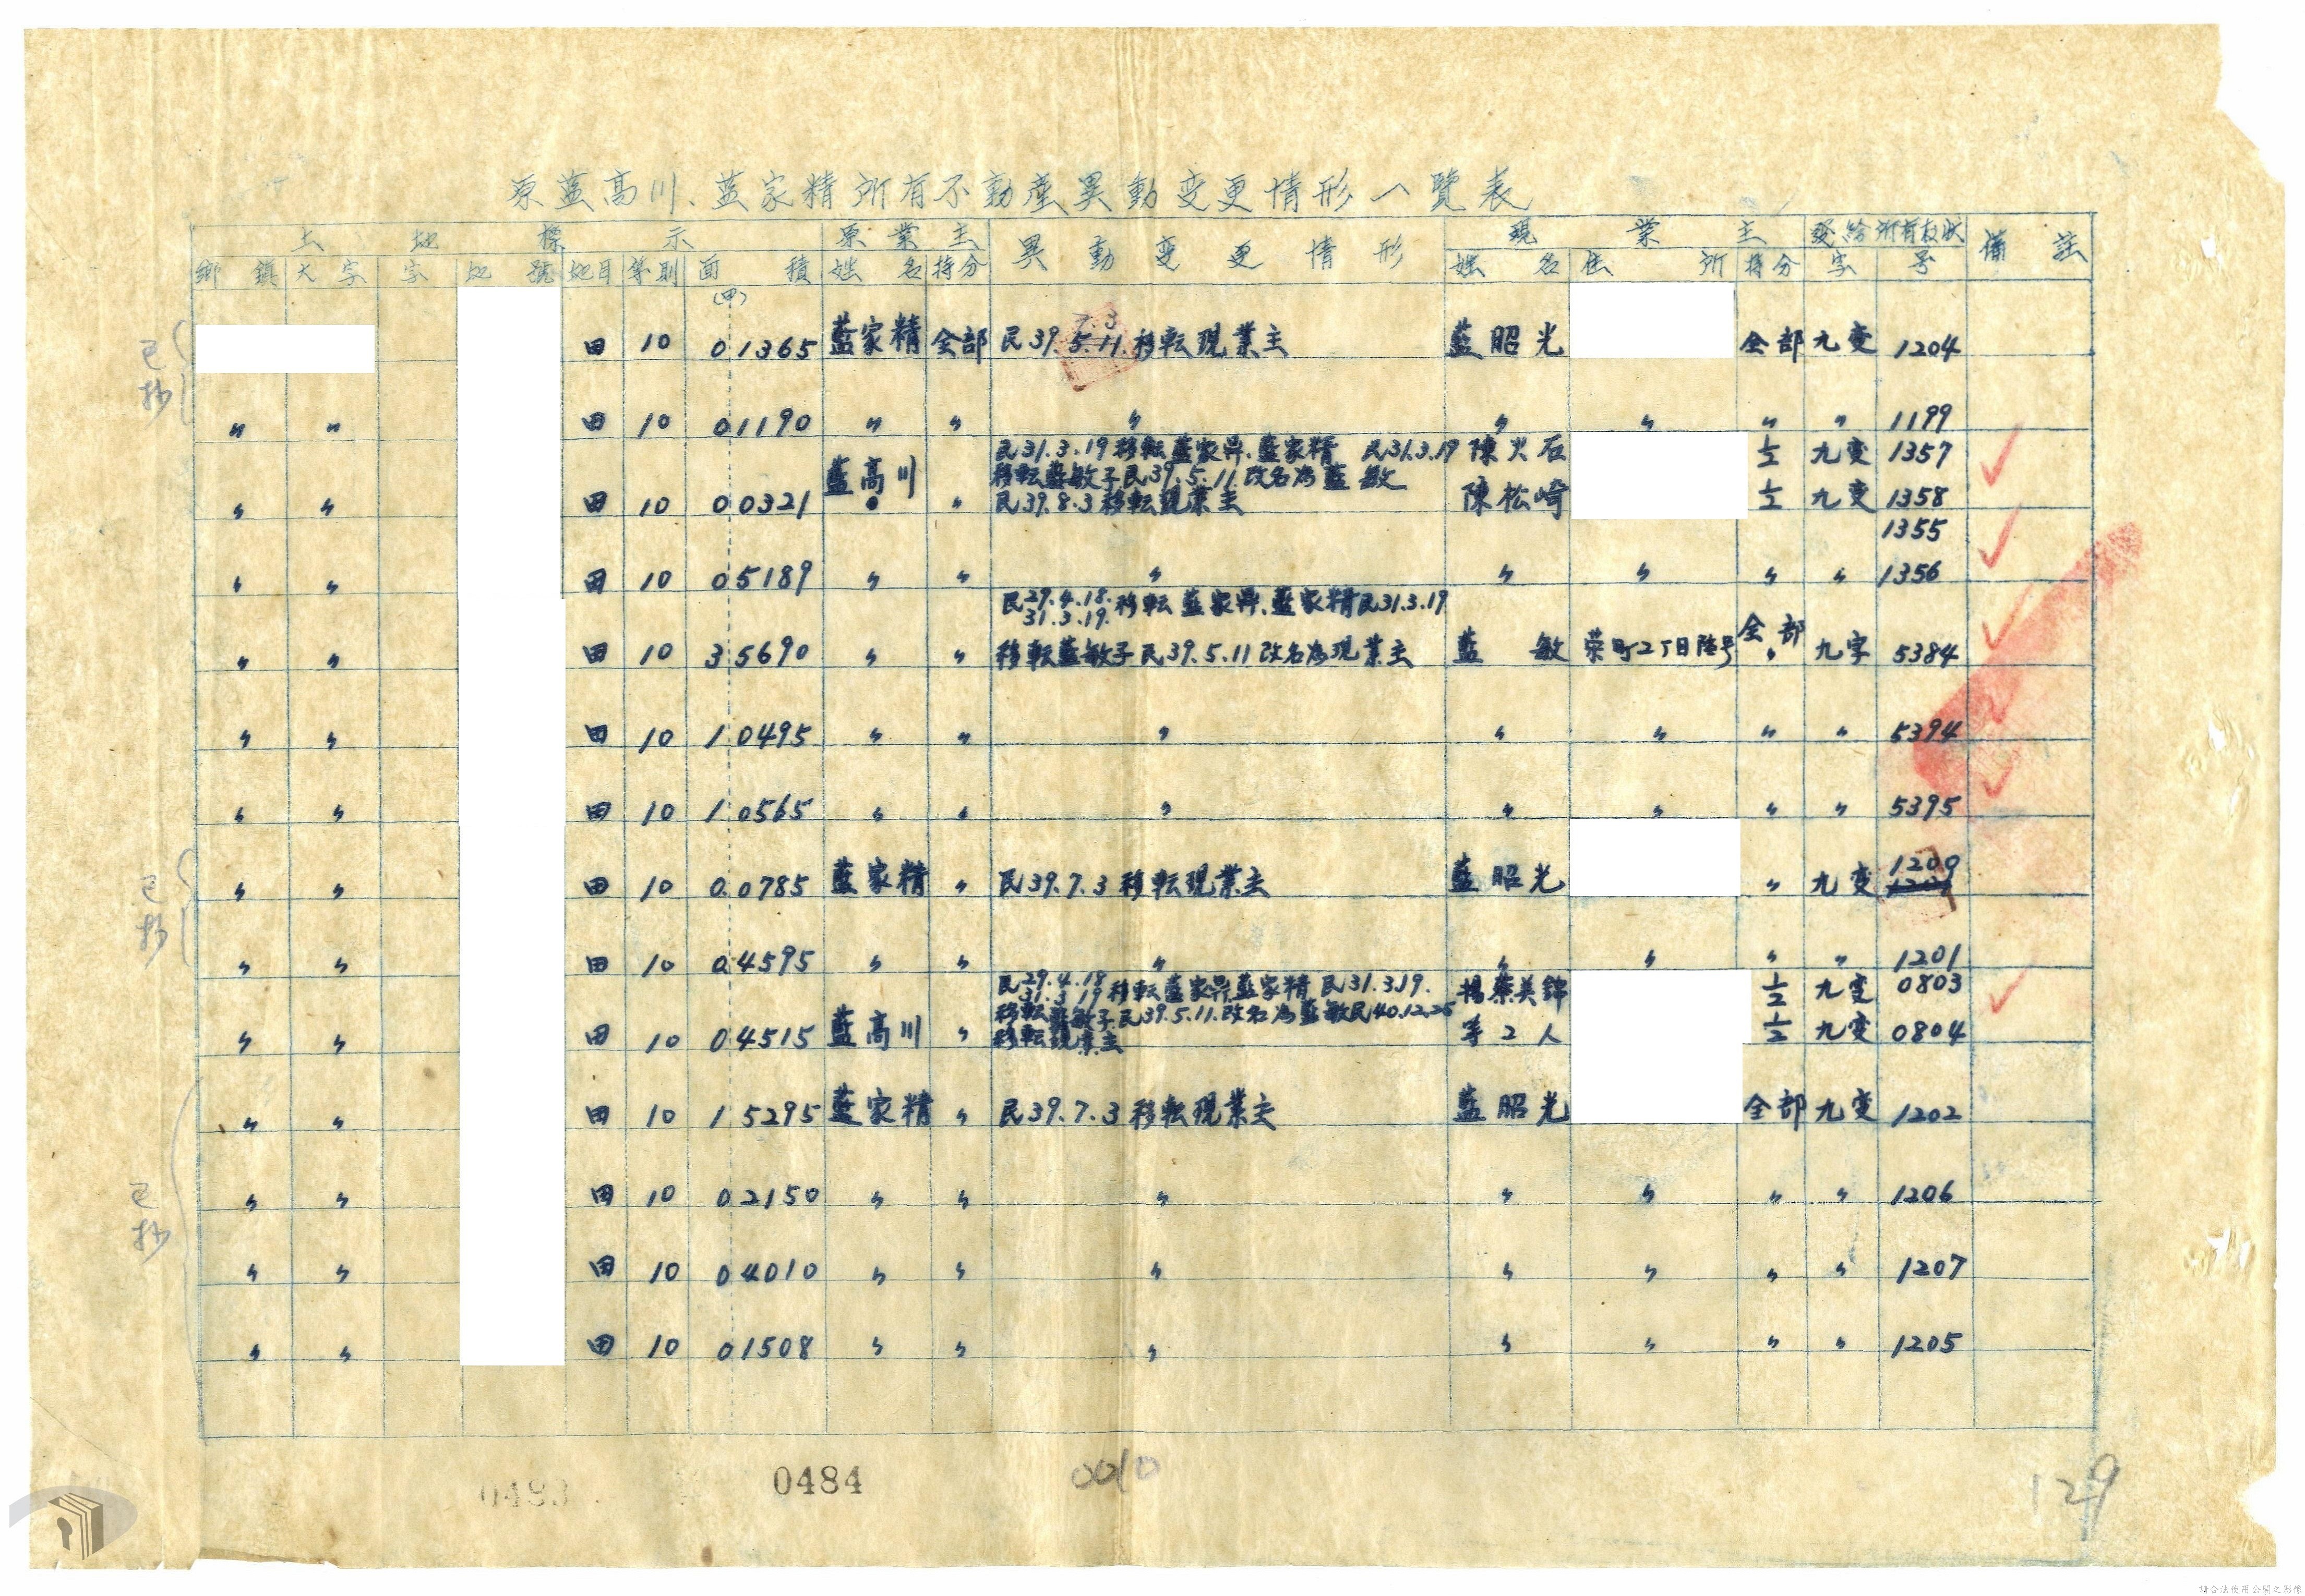 原藍高川、藍家精所有不動產異動变更情形一覽表
土地標示 原業主 異動变更情形 現業主 發給所有权狀 備註
鄉鎮 大字 字 地號 地目 等則 面積 姓名 持分 姓名 住所 持分 字 号
(甲)
7.3
田 10 0 1365 藍家精 全部 民39.5.11.移転現業主 藍昭光 全部 九变 1204
已抄
〃 〃 田 10 0 1190 〃 〃 〃 〃 〃 〃 〃 1199
民31.3.19移転藍家鼎.藍家精 民31.3.19 陳火石 1/2 九变 1357
移転藍敏子民39.5.11.改名為藍敏
〃 〃 田 10 0 0321 藍高川 〃 民39.8.3移転現業主 陳松崎 1/2 九变 1358
1355
〃 〃 田 10 0 5189 〃 〃 〃 〃 〃 〃 〃 1356
民29.4.18.
31.3.19.移転藍家鼎.藍家精民31.3.19
〃 〃 田 10 3 5690 〃 〃 移転藍敏子民39.5.11改名為現業主 藍敏 荣町2丁目陸号 全部 九字 5384
〃 〃 田 10 1 0495 〃 〃 〃 〃 〃 〃 〃 5394
〃 〃 田 10 1 0565 〃 〃 〃 〃 〃 〃 〃 5395
〃 〃 田 10 0 0785 藍家精 〃 民39.7.3移転現業主 藍昭光 〃 九变 1209
已抄
〃 〃 田 10 0 4595 〃 〃 〃 〃 〃 〃 〃 1201
民29.4.18
31.3.19移転藍家鼎藍家精民31.3.19. 楊蔡美錦 1/2 九变 0803
移転藍敏子民39.5.11.改名為藍敏民40.12.25
〃 〃 田 10 0 4515 藍高川 〃 移転現業主 等2人 1/2 九变 0804
〃 〃 田 10 1 5295 藍家精 〃 民39.7.3移転現業主 藍昭光 全部 九变 1202
〃 〃 田 10 0 2150 〃 〃 〃 〃 〃 〃 〃 1206
已抄
〃 〃 田 10 0 4010 〃 〃 〃 〃 〃 〃 〃 1207
〃 〃 田 10 0 1508 〃 〃 〃 〃 〃 〃 〃 1205
0483 0484 0010 129
請合法使用公開之影像